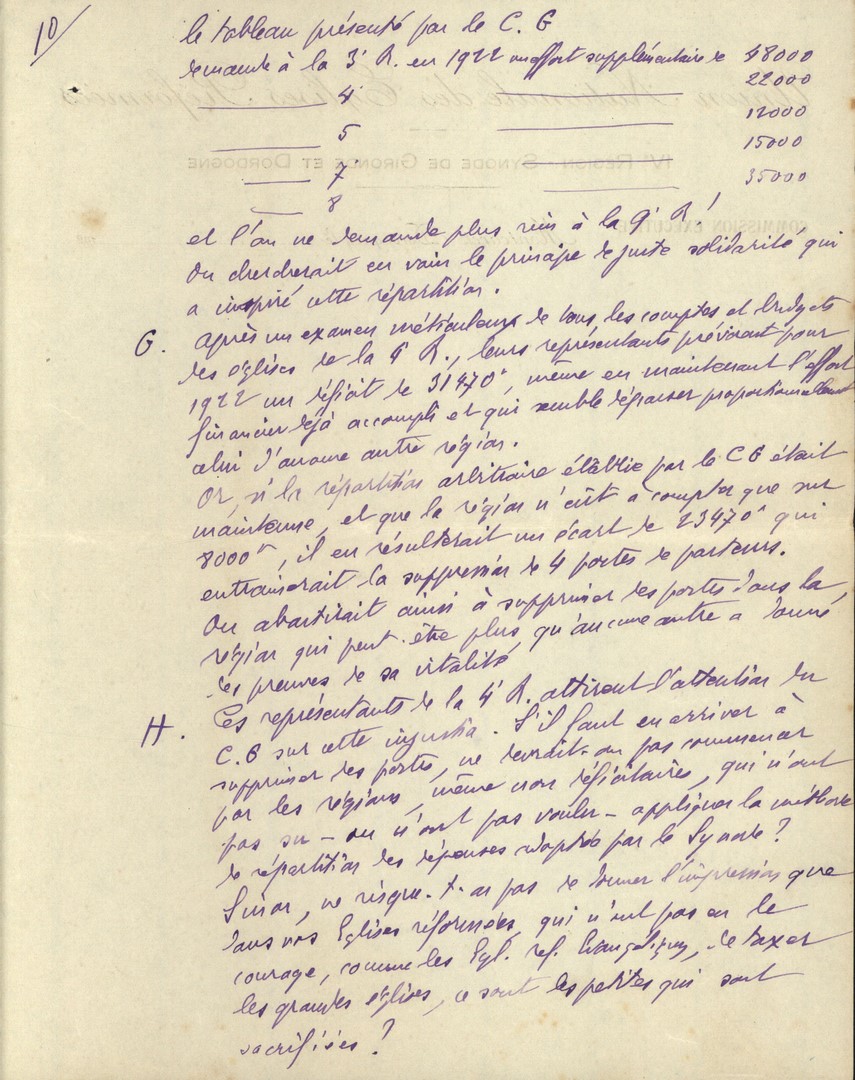 10/
le tableau présenté par le C. G
demande à la 3e R. en 1922 un effort supplémentaire de 48000
4 22000
5 12000
7 15000
8 35000
et l'on ne demande plus rien à la 9e R!
On chercherait en vain le principe de juste solidarité qui
a inspiré cette répartition.
G. Après un examen méticuleux de tous les comptes et budgets
des églises de la 4e R., leurs représentants prévoient pour
1922 un déficit de 31470f, même en maintenant l'effort
financier déjà accompli et qui semble dépasser proportionnellement
celui d'aucune autre région.
Or, si la répartition arbitraire établie par le C G était
maintenue, et que la région n'eût à compter que sur
8000f, il en résulterait un écart de 23470f qui
entrainerait la suppression de 4 postes de pasteurs.
On aboutirait ainsi à supprimer des postes dans la
région qui peut-être plus qu'aucune autre a donné
des preuves de sa vitalité
H. Les représentants de la 4e R. attirent l'attention du
C. G sur cette injustice. S'il faut en arriver à
supprimer des postes, ne devrait-on pas commencer
par les régions, même non déficitaires, qui n'ont
pas su - ou n'ont pas voulu - appliquer la méthode
de répartition des dépenses adoptée par le Synode?
Sinon, ne risque-t-on pas de donner l'impression que
dans nos Eglises réformées, qui n'ont pas eu le
courage, comme les Egl. ref. Evangéliques, de taxer
les grandes églises, ce sont les petites qui sont
sacrifiées?